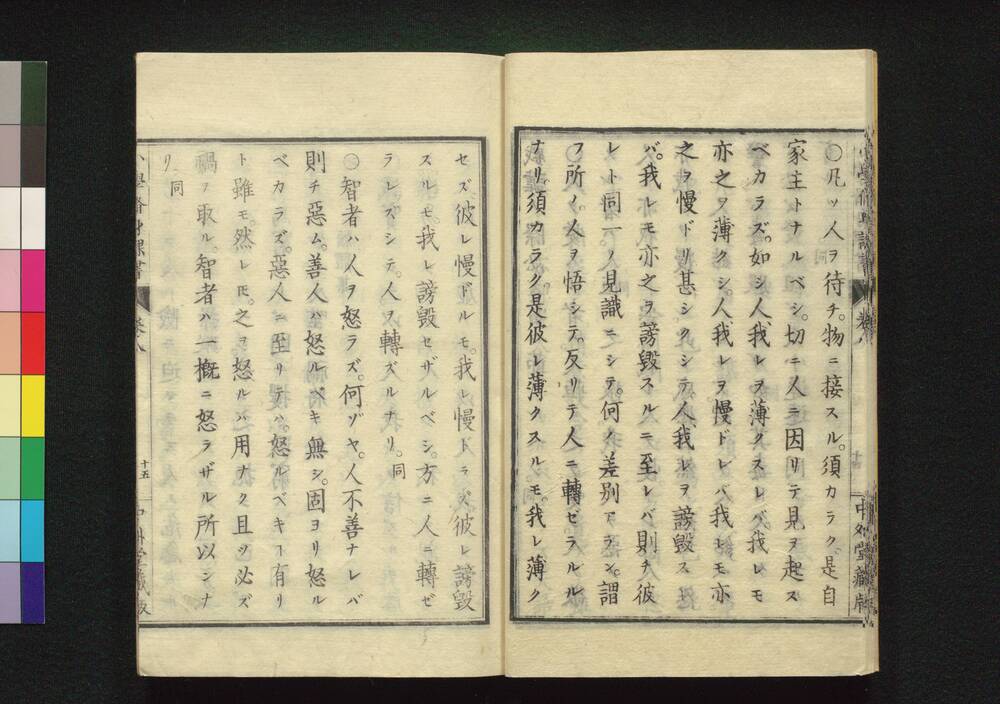 〇凡ソ人ヲ待チ。物ニ接スル。須カラク。是自
家主トナルベシ。切ニ人ニ因リテ見ヲ起ス
ベカラズ。如シ人我レヲ薄クスレバ。我レモ
亦之ヲ薄クシ。人我レヲ慢ドレバ我レモ亦
之ヲ慢ドリ甚シクシテ。人我レヲ謗毀ス
バ。我レモ亦之ヲ謗毀スルニ至レバ則チ彼
レト同一ノ見識ニシテ。何ノ差別アラン。謂
フ所ノ。人ヲ悟シテ。反リテ人ニ轉ゼラルル
ナリ。須カラク。是彼レ薄クスルモ。我レ薄ク
十四
中外堂藏版
セズ彼レ慢ドルモ。我レ慢ドラズ。彼レ謗毀
スルモ。我レ謗毀セザルベシ。方ニ人ニ轉ゼ
ラレズシテ。人ヲ轉ズルナリ。同
〇智者ハ人ヲ怒ラズ。何ゾヤ。人不善ナレバ
則チ惡ム。善人ハ怒ルベキ無シ。固ヨリ怒ル
ベカラズ。惡人ニ至リテハ。怒ルベキヿ有リ
ト雖モ。然レ𪜈。之ヲ怒ルハ用ナク且ツ必ズ
禍ヲ取ル。智者ハ一概ニ怒ラザル所以ンナ
リ同
十五